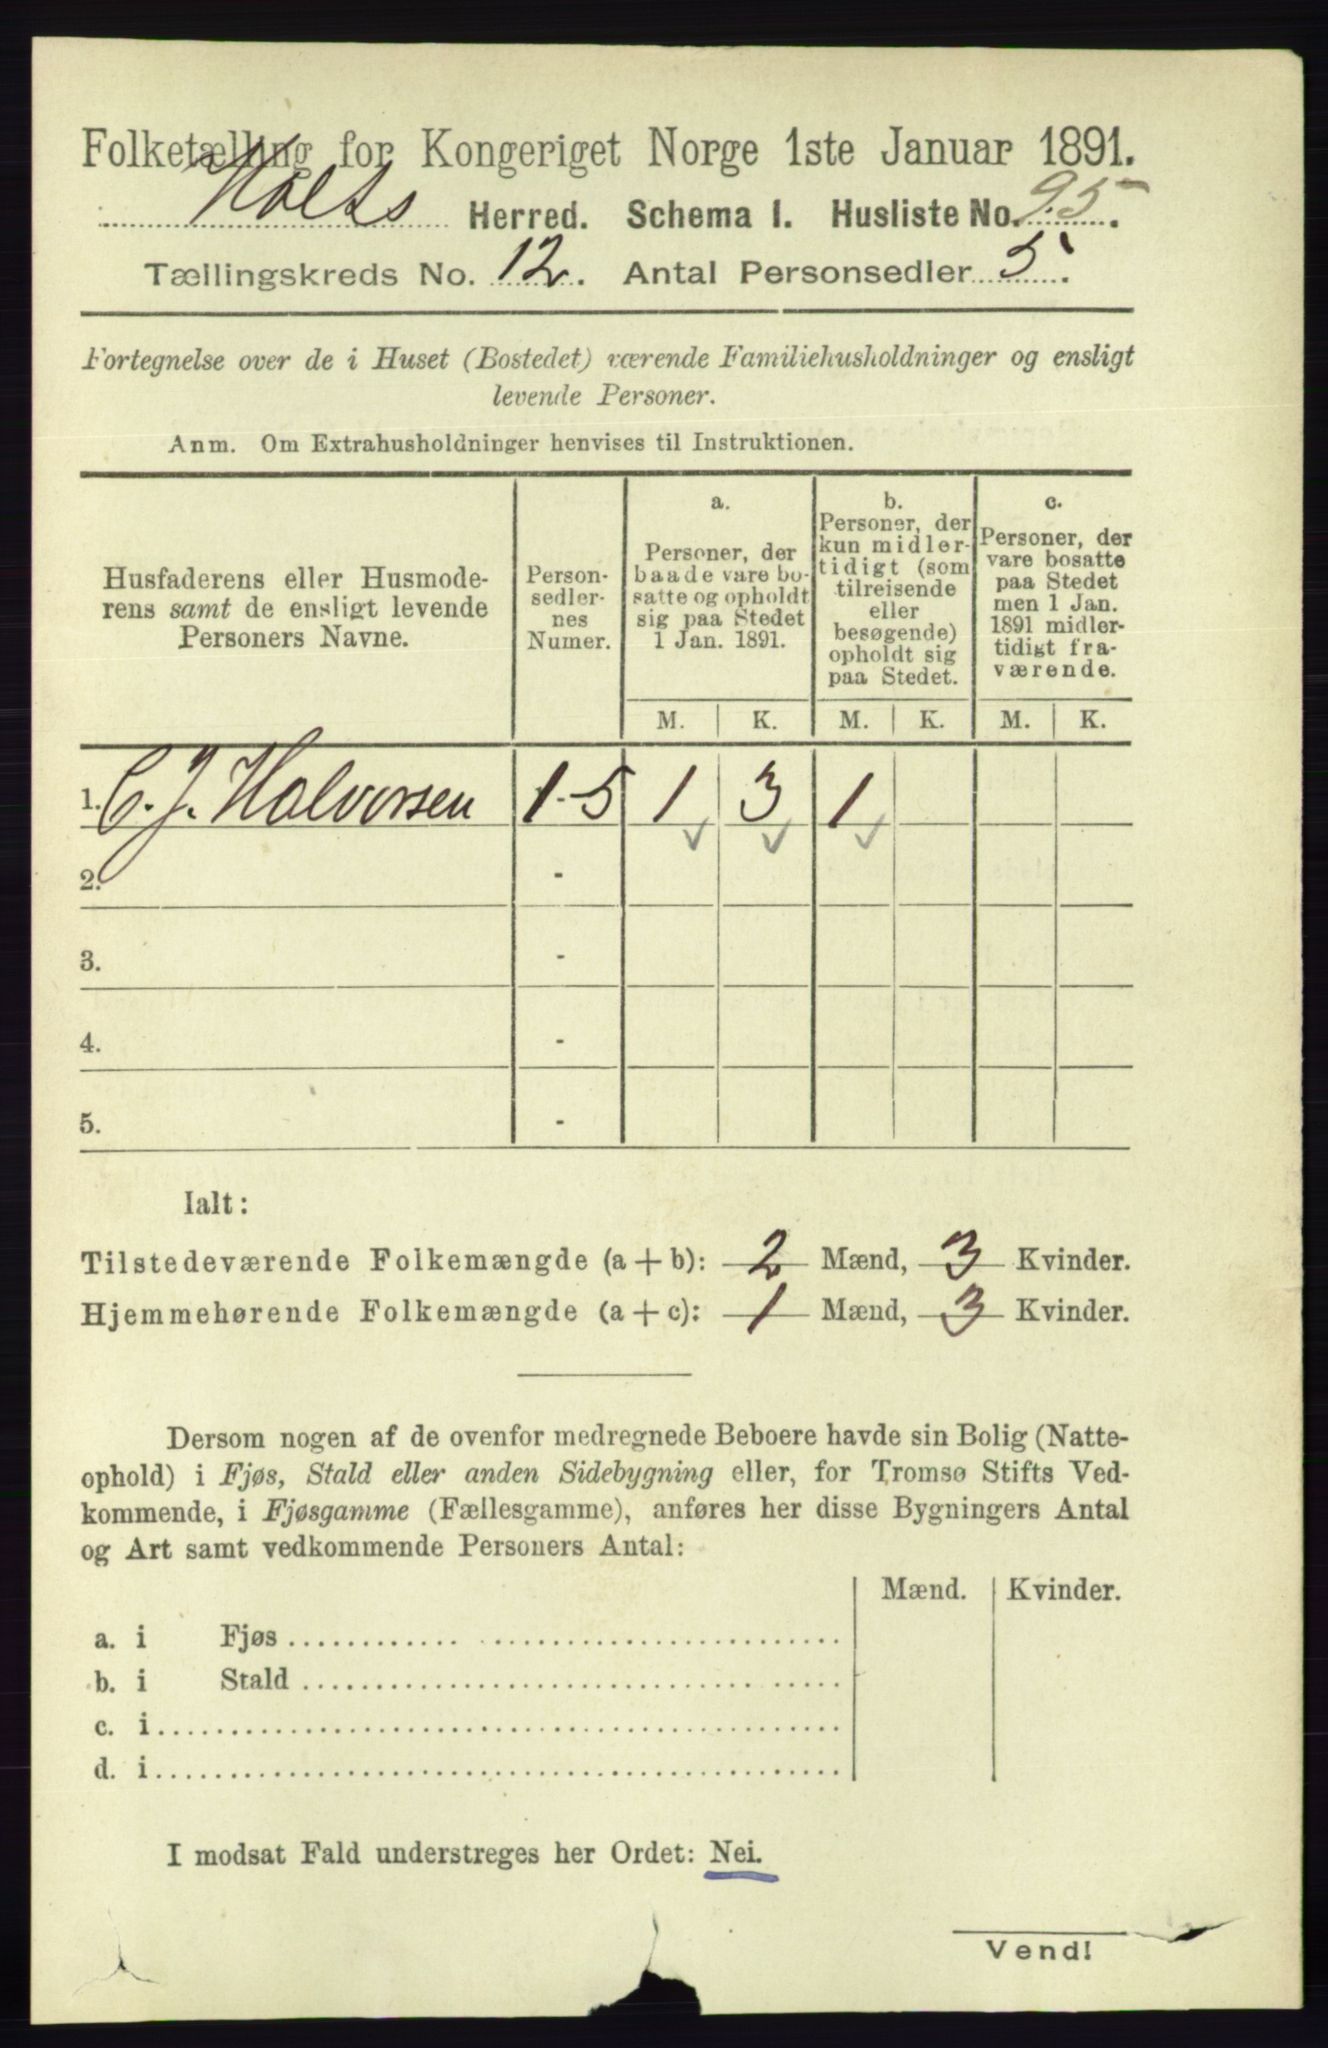 Folketælling for Kongeriget Norge 1ste Januar 1891.
Holts Herred. Schema I. Husliste No. 95.
Tællingskreds No. 12. Antal Personsedler 5.
Fortegnelse over de i Huset (Bostedet) værende Familiehusholdninger og ensligt
levende Personer.
Anm. Om Extrahusholdninger henvises til Instruktionen.
Husfaderens eller Husmode-
rens samt de ensligt levende
Personers Navne.
Person-
sedler-
nes
Numer.
a.
Personer, der
baade vare bo-
satte og opholdt
sig paa Stedet
1 Jan. 1891.
b.
Personer, der
kun midler-
tidigt (som
tilreisende
eller
besøgende)
opholdt sig
paa Stedet.
c.
Personer, der
vare bosatte
paa Stedet
men 1 Jan.
1891 midler-
tidigt fra-
værende.
M. K. M. K. M. K.
1. C. J. Halvorsen 1-5 1 3 1
2. -
3. -
4. -
5. -
Ialt:
Tilstedeværende Folkemængde (a + b): 2 Mænd, 3 Kvinder.
Hjemmehørende Folkemængde (a + c): 1 Mænd, 3 Kvinder.
Dersom nogen af de ovenfor medregnede Beboere havde sin Bolig (Natte-
ophold) i Fjøs, Stald eller anden Sidebygning eller, for Tromsø Stifts Ved-
kommende, i Fjøsgamme (Fællesgamme), anføres her disse Bygningers Antal
og Art samt vedkommende Personers Antal:
Mænd. Kvinder.
a. i Fjøs
b. i Stald
c. i
d. i
I modsat Fald understreges her Ordet: Nei.
Vend!